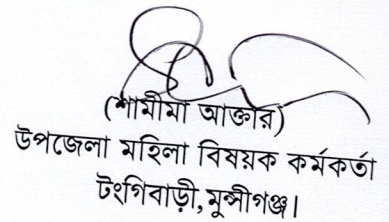 (শামীমা আক্তার)
উপজেলা মহিলা বিষয়ক কর্মকর্তা
টংগিবাড়ী, মুন্সীগঞ্জ।